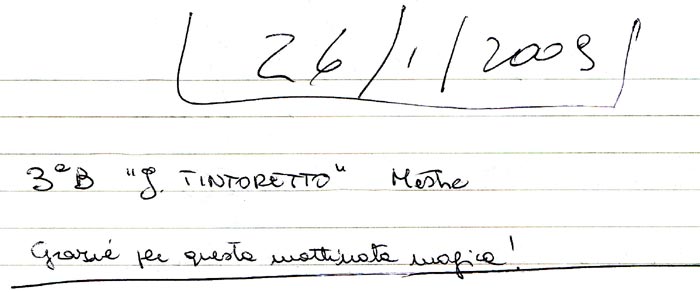 26/1/2009
3ªB "J. TINTORETTO" Mestre
Grazie per questa mattinata magica!